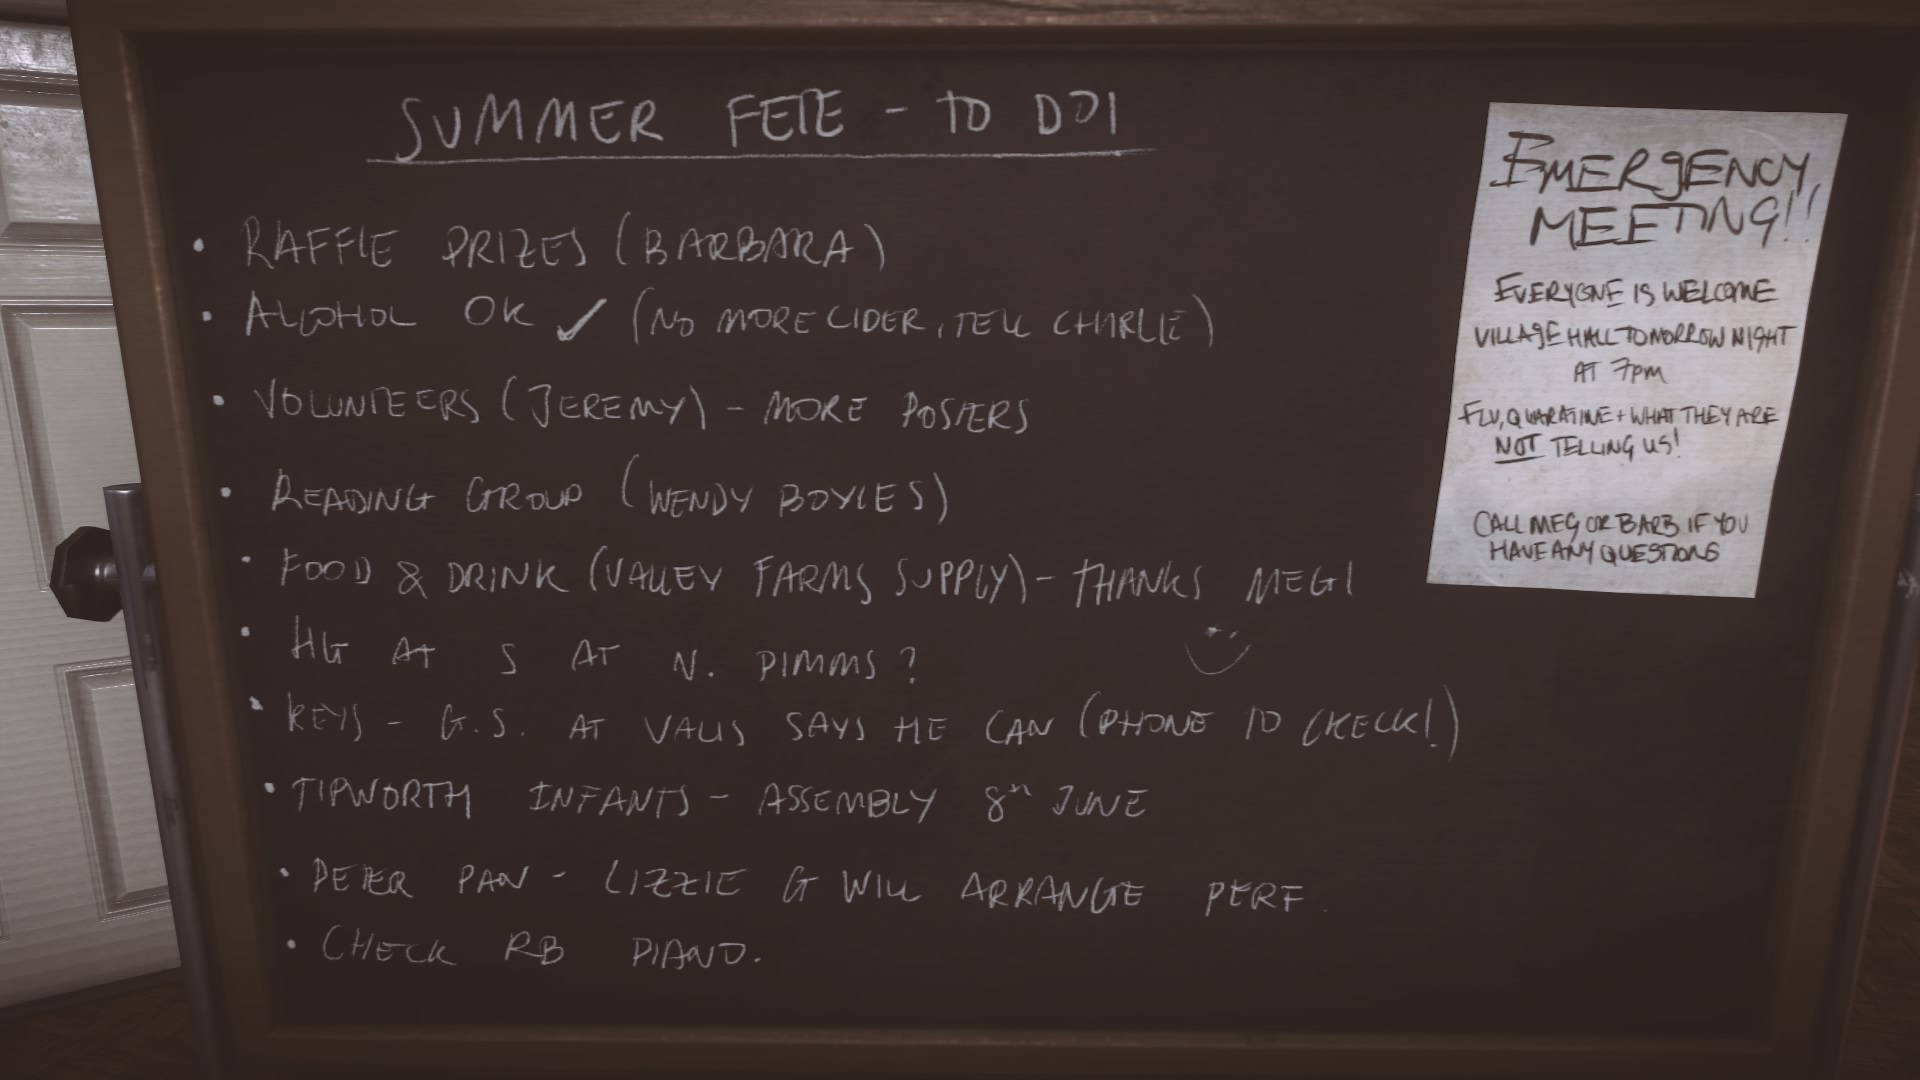 SUMMER FETE - TO DO!
• RAFFLE PRIZES (BARBARA)
• ALCOHOL OK ✓ (NO MORE CIDER, TELL CHARLIE)
• VOLUNTEERS (JEREMY) - MORE POSTERS
• READING GROUP (WENDY BOYLES)
• FOOD & DRINK (VALLEY FARMS SUPPLY) - THANKS MEG!
• HG AT S AT N. PIMMS?
• KEYS - G.S. AT VALIS SAYS HE CAN (PHONE TO CHECK!)
• TIPWORTH INFANTS - ASSEMBLY 8TH JUNE
• PETER PAN - LIZZIE G WILL ARRANGE PERF.
• CHECK RB PIANO.
EMERGENCY
MEETING!!
EVERYONE IS WELCOME
VILLAGE HALL TOMORROW NIGHT
AT 7pm
FLU, QUARATINE + WHAT THEY ARE
NOT TELLING US!
CALL MEG OR BARB IF YOU
HAVE ANY QUESTIONS